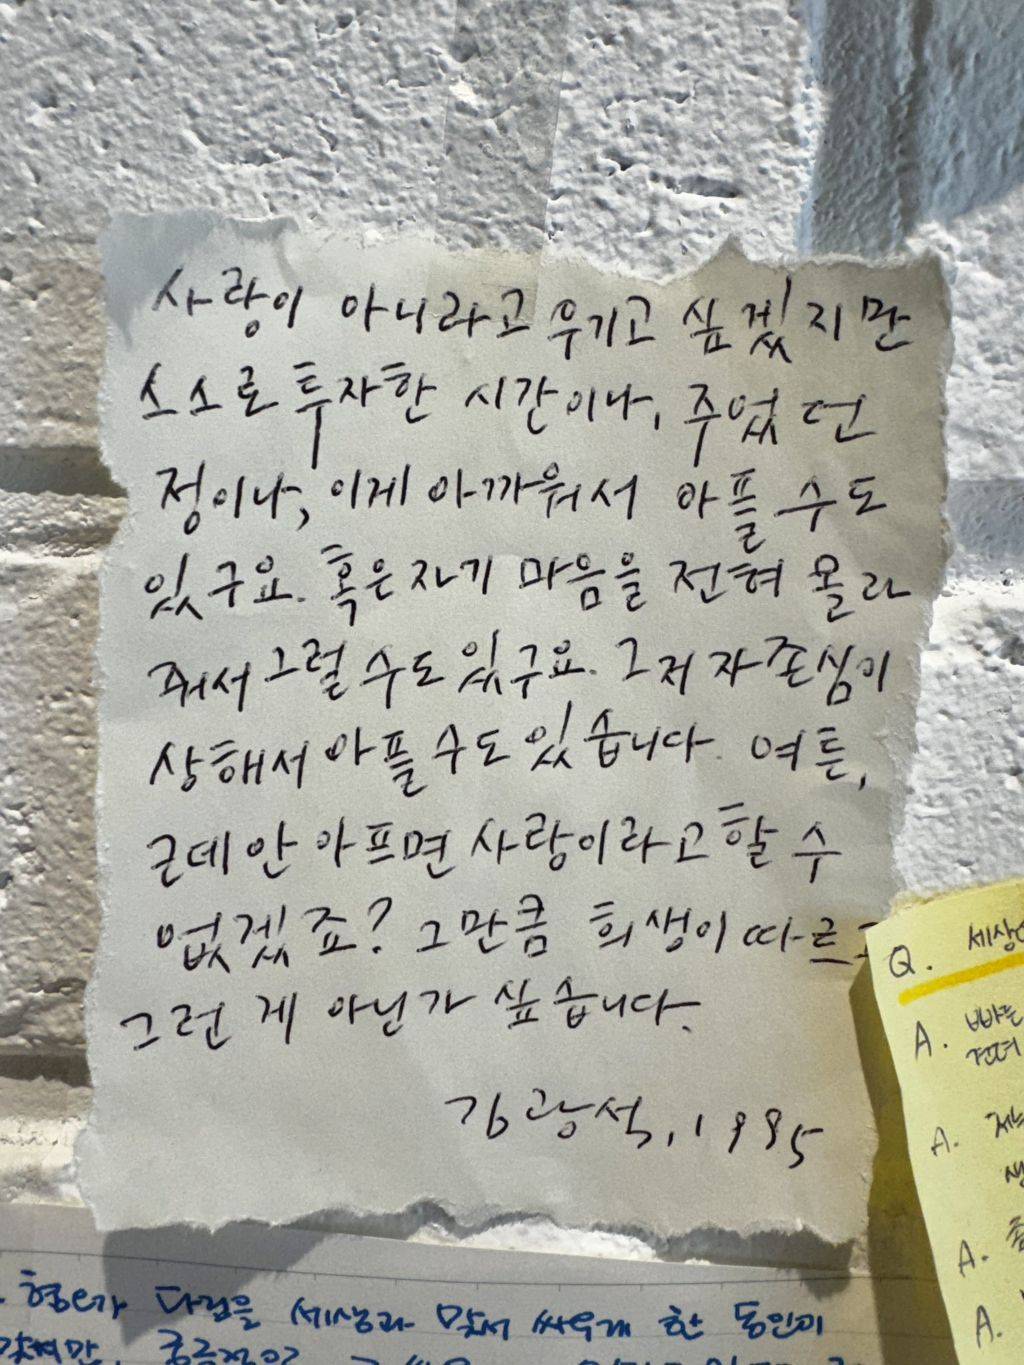 사랑이 아니라고 우기고 싶겠지만
스스로 투자한 시간이나, 주었던
정이나, 이게 아까워서 아플 수도
있구요. 혹은 자기 마음을 전혀 몰라
줘서 그럴 수도 있구요. 그저 자존심이
상해서 아플 수도 있습니다. 여튼,
근데 안 아프면 사랑이라고 할 수
없겠죠? 그만큼 희생이 따르고
그런 게 아닌가 싶습니다.
김광석, 1995
Q. 세상
A. 빠른
A.
A.
A.
세상과 맞서 싸우게 한 동인이